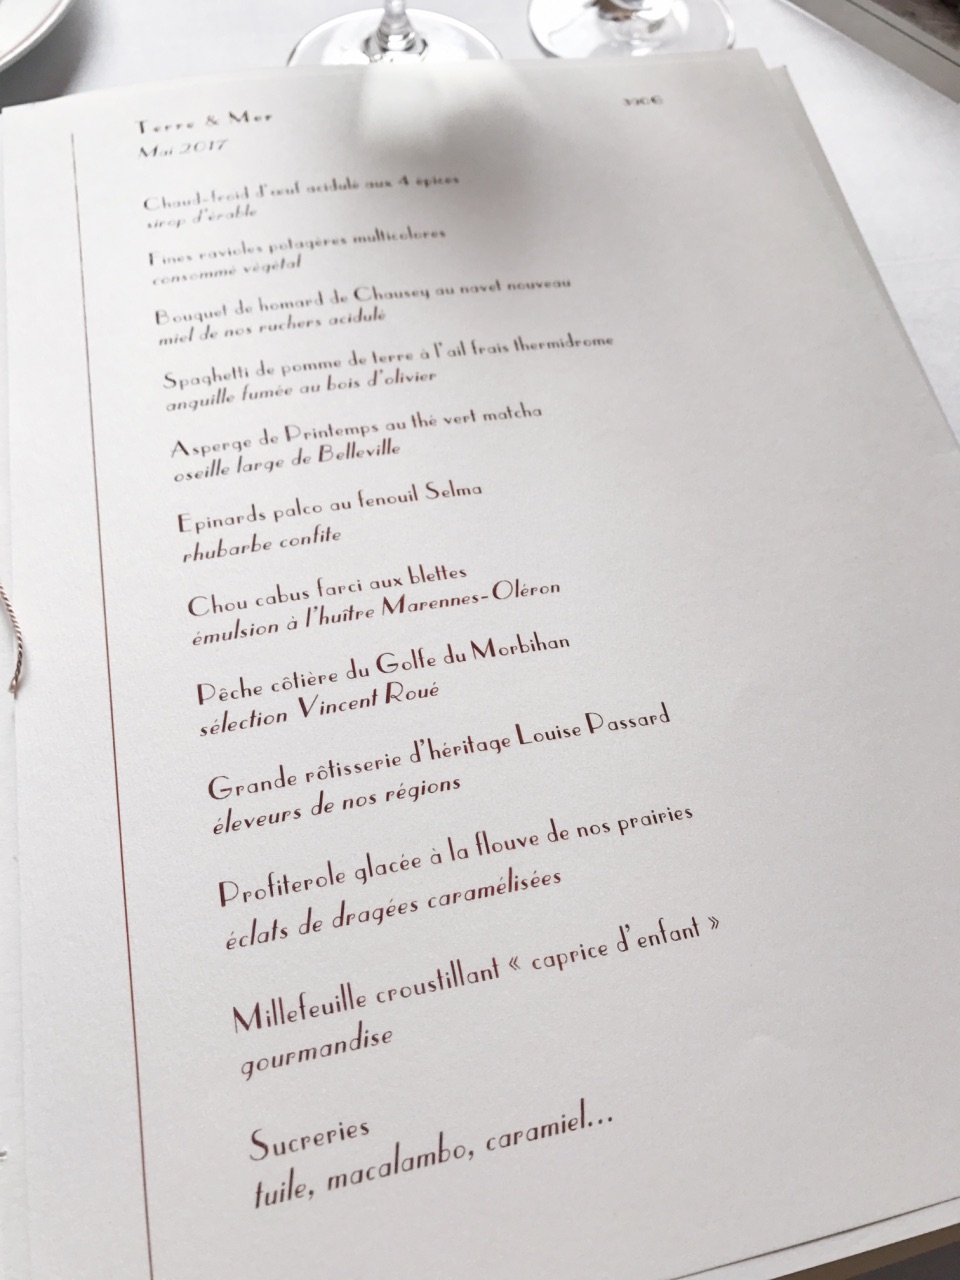 Terre & Mer
Mai 2017
Chaud-froid d'œuf acidulé aux 4 épices
sirop d'érable
Fines ravioles potagères multicolores
consommé végétal
Bouquet de homard de Chausey au navet nouveau
miel de nos ruchers acidulé
Spaghetti de pomme de terre à l'ail frais thermidrome
anguille fumée au bois d'olivier
Asperge de Printemps au thé vert matcha
oseille large de Belleville
Epinards palco au fenouil Selma
rhubarbe confite
Chou cabus farci aux blettes
émulsion à l'huître Marennes-Oléron
Pêche côtière du Golfe du Morbihan
sélection Vincent Roué
Grande rôtisserie d'héritage Louise Passard
éleveurs de nos régions
Profiterole glacée à la flouve de nos prairies
éclats de dragées caramélisées
Millefeuille croustillant « caprice d'enfant »
gourmandise
Sucreries
tuile, macalambo, caramiel...